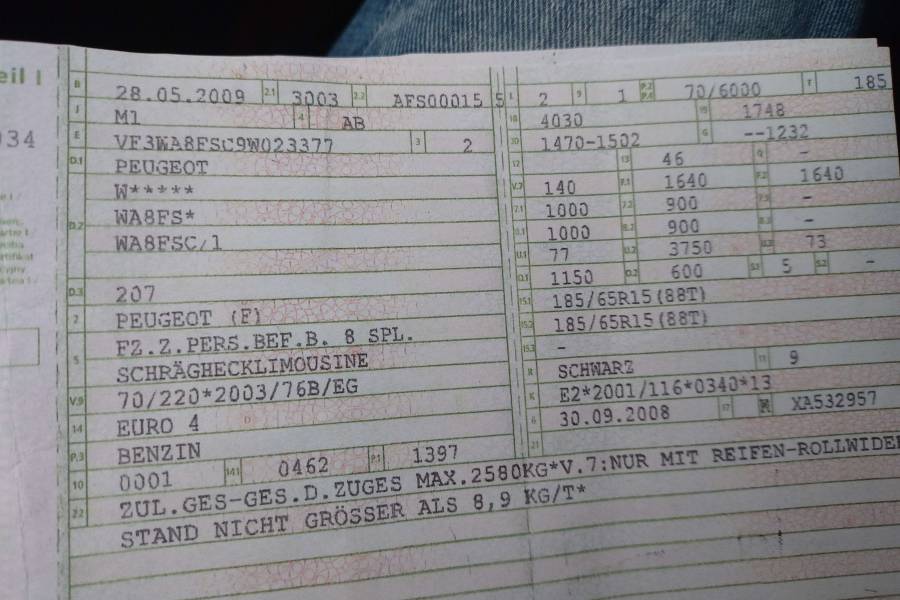 eil I
034
B 28.05.2009 2.1 3003 2.2 AFS00015 5
J M1 4 AB
E VF3WA8FSC9W023377 3 2
D.1 PEUGEOT
W*****
D.2 WA8FS*
WA8FSC/1
D.3 207
2 PEUGEOT (F)
5 FZ.Z.PERS.BEF.B. 8 SPL.
SCHRÄGHECKLIMOUSINE
V.9 70/220*2003/76B/EG
14 EURO 4
P.3 BENZIN
10 0001 14.1 0462 P.1 1397
22 ZUL.GES-GES.D.ZUGES MAX.2580KG*V.7:NUR MIT REIFEN-ROLLWIDE
STAND NICHT GRÖSSER ALS 8,9 KG/T*
L 2 9 1 P.2 P.4 70/6000 T 185
18 4030 19 1748
20 1470-1502 G --1232
12 13 46 Q -
V.7 140 F.1 1640 F.2 1640
7.1 1000 7.2 900 7.3 -
8.1 1000 8.2 900 8.3 -
U.1 77 U.2 3750 U.3 73
O.1 1150 O.2 600 S.1 5 S.2 -
15.1 185/65R15(88T)
15.2 185/65R15(88T)
15.3 -
R SCHWARZ 11 9
K E2*2001/116*0340*13
6 30.09.2008 17 K XA532957
21